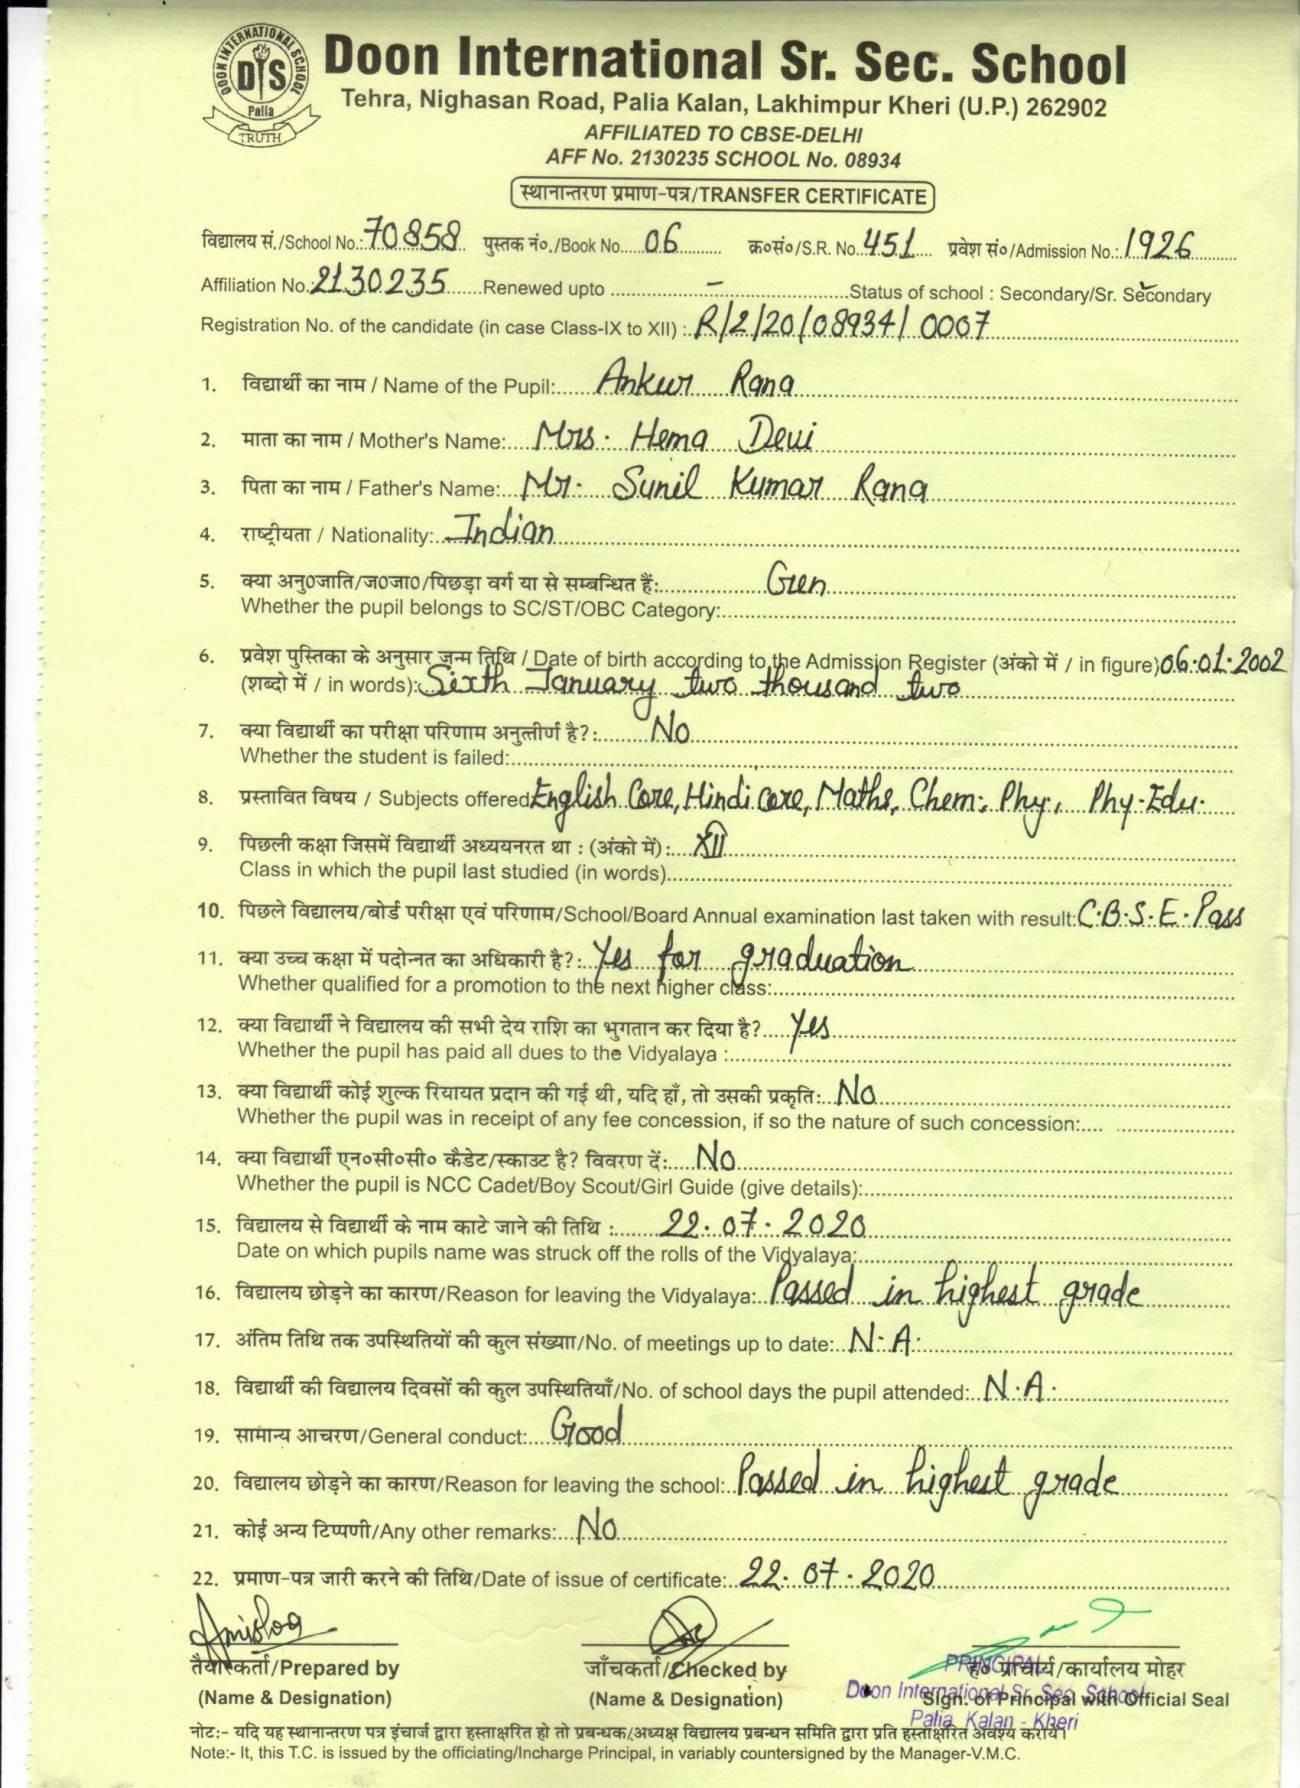 DOON INTERNATIONAL SCHOOL
DIS
Palia
TRUTH
Doon International Sr. Sec. School
Tehra, Nighasan Road, Palia Kalan, Lakhimpur Kheri (U.P.) 262902
AFFILIATED TO CBSE-DELHI
AFF No. 2130235 SCHOOL No. 08934
स्थानान्तरण प्रमाण-पत्र/TRANSFER CERTIFICATE
विद्यालय सं./School No.: 70858 पुस्तक नं०./Book No. 06 क्र०सं०/S.R. No. 451 प्रवेश सं०/Admission No.: 1926
Affiliation No.: 2130235 Renewed upto - Status of school : Secondary/Sr. Secondary
Registration No. of the candidate (in case Class-IX to XII) : R/2/20/08934/0007
1. विद्यार्थी का नाम / Name of the Pupil: Ankur Rana
2. माता का नाम / Mother's Name: Mrs. Hema Devi
3. पिता का नाम / Father's Name: Mr. Sunil Kumar Rana
4. राष्ट्रीयता / Nationality: Indian
5. क्या अनु0जाति/ज0जा0/पिछड़ा वर्ग या से सम्बन्धित हैं: Gen
Whether the pupil belongs to SC/ST/OBC Category:
6. प्रवेश पुस्तिका के अनुसार जन्म तिथि / Date of birth according to the Admission Register (अंको में / in figure) 06.01.2002
(शब्दो में / in words): Sixth January two thousand two
7. क्या विद्यार्थी का परीक्षा परिणाम अनुत्तीर्ण है?: No
Whether the student is failed:
8. प्रस्तावित विषय / Subjects offered English Core, Hindi core, Maths, Chem., Phy., Phy. Edu.
9. पिछली कक्षा जिसमें विद्यार्थी अध्ययनरत था : (अंको में): XII
Class in which the pupil last studied (in words)
10. पिछले विद्यालय/बोर्ड परीक्षा एवं परिणाम/School/Board Annual examination last taken with result: C.B.S.E. Pass
11. क्या उच्च कक्षा में पदोन्नत का अधिकारी है?: Yes for graduation
Whether qualified for a promotion to the next higher class:
12. क्या विद्यार्थी ने विद्यालय की सभी देय राशि का भुगतान कर दिया है? Yes
Whether the pupil has paid all dues to the Vidyalaya :
13. क्या विद्यार्थी कोई शुल्क रियायत प्रदान की गई थी, यदि हाँ, तो उसकी प्रकृति: No
Whether the pupil was in receipt of any fee concession, if so the nature of such concession:
14. क्या विद्यार्थी एन०सी०सी० कैडेट/स्काउट है? विवरण दें: No
Whether the pupil is NCC Cadet/Boy Scout/Girl Guide (give details):
15. विद्यालय से विद्यार्थी के नाम काटे जाने की तिथि : 22.07.2020
Date on which pupils name was struck off the rolls of the Vidyalaya:
16. विद्यालय छोड़ने का कारण/Reason for leaving the Vidyalaya: Passed in highest grade
17. अंतिम तिथि तक उपस्थितियों की कुल संख्याा/No. of meetings up to date: N.A.
18. विद्यार्थी की विद्यालय दिवसों की कुल उपस्थितियाँ/No. of school days the pupil attended: N.A.
19. सामान्य आचरण/General conduct: Good
20. विद्यालय छोड़ने का कारण/Reason for leaving the school: Passed in highest grade
21. कोई अन्य टिप्पणी/Any other remarks: No
22. प्रमाण-पत्र जारी करने की तिथि/Date of issue of certificate: 22.07.2020
तैयारकर्ता/Prepared by जाँचकर्ता/Checked by ह० प्राचार्य/कार्यालय मोहर
(Name & Designation) (Name & Designation) Sign. of Principal with Official Seal
PRINCIPAL
Doon International Sr. Sec. School
Palia Kalan - Kheri
नोट:- यदि यह स्थानान्तरण पत्र इंचार्ज द्वारा हस्ताक्षरित हो तो प्रबन्धक/अध्यक्ष विद्यालय प्रबन्धन समिति द्वारा प्रति हस्ताक्षरित अवश्य करायें।
Note:- It, this T.C. is issued by the officiating/Incharge Principal, in variably countersigned by the Manager-V.M.C.